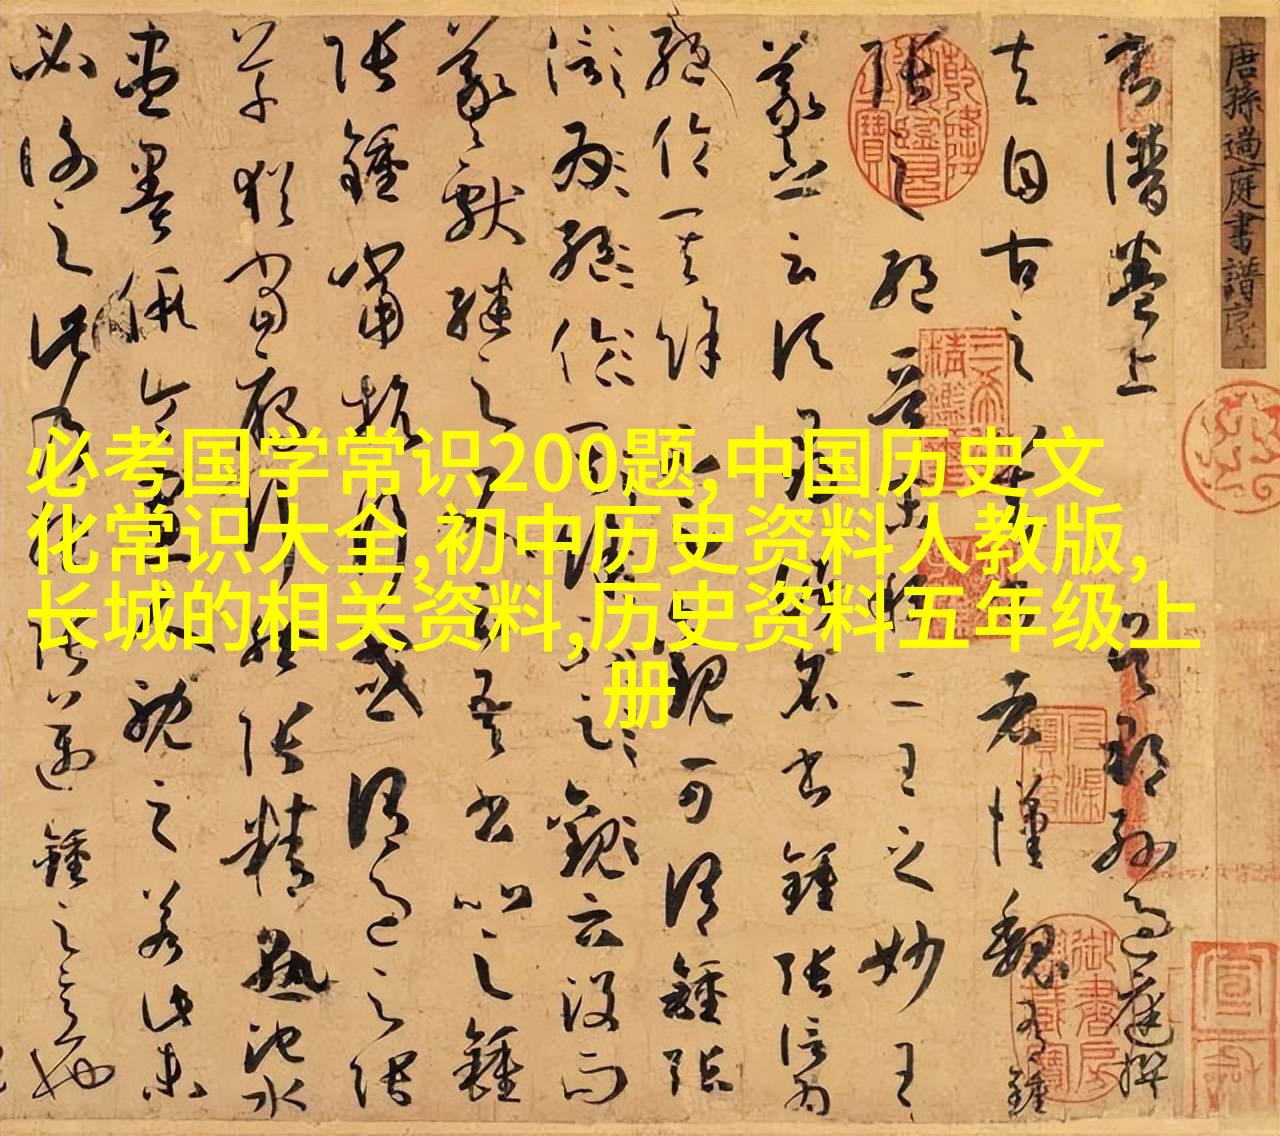 唐孫過庭書譜序
書譜卷上 吳郡孫過庭撰
夫自古之善書者漢魏有鍾
張之絕晉末稱二王之妙王
羲之云頃尋諸名書鍾張信為
絕倫其餘不足觀可謂鍾張
云沒而
羲獻繼之又云吾書比之鍾
張鍾當抗行或謂過之張
草猶當雁行然張精熟池水
盡墨假令寡人耽之若此未
必謝之此乃推張邁鍾之意也
必考国学常识200题,中国历史文
化常识大全,初中历史资料人教版,
长城的相关资料,历史资料五年级上
册